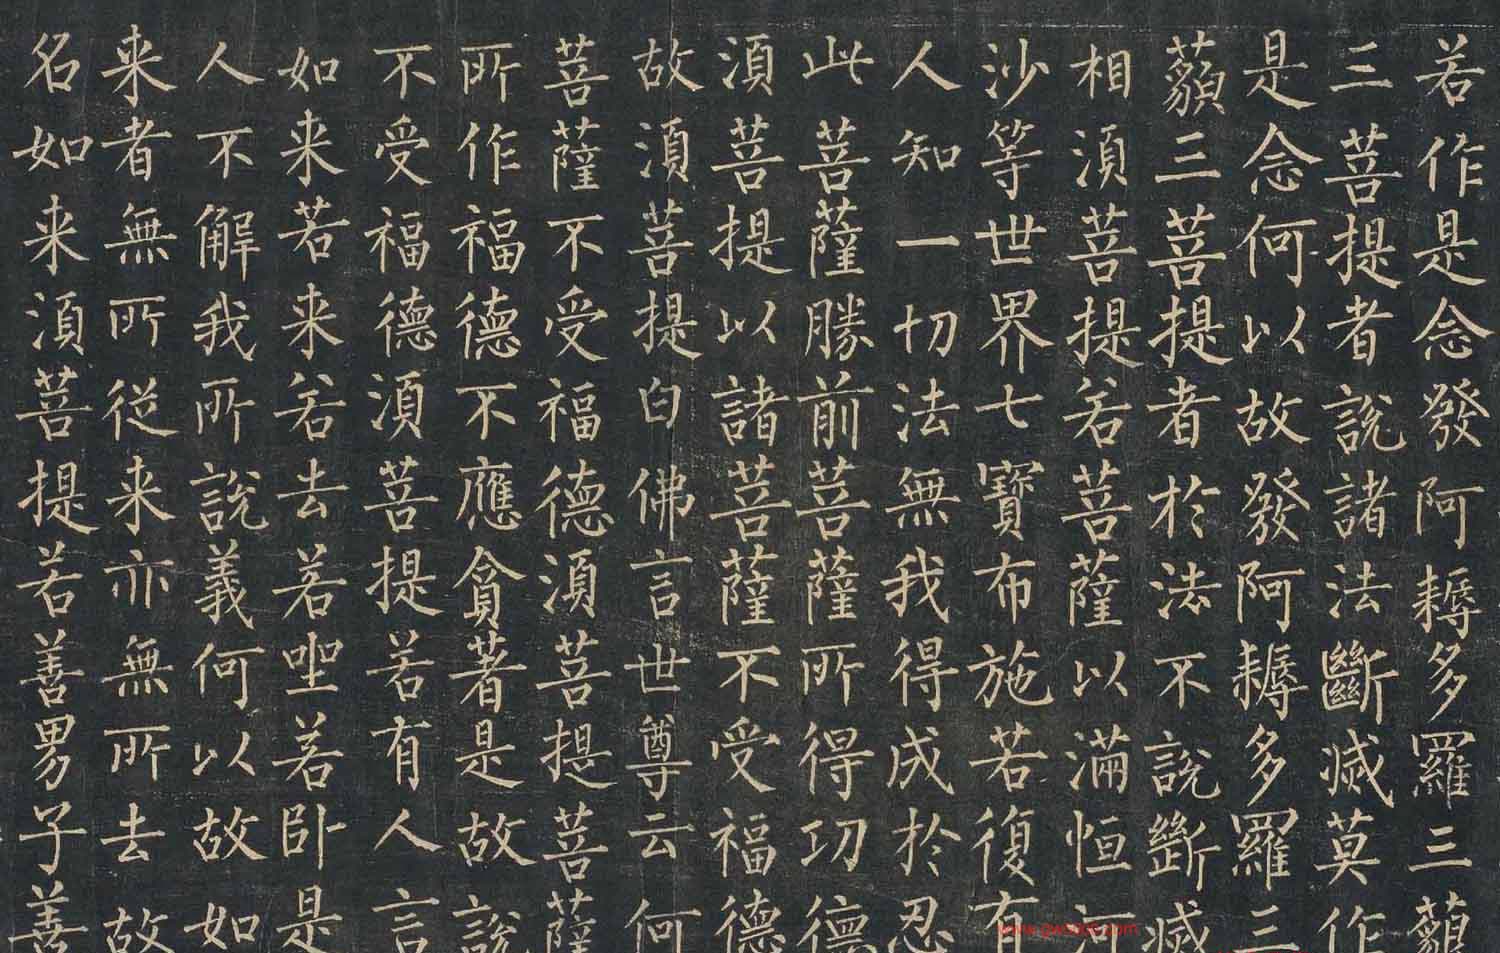 若作是念發阿耨多羅三藐
三菩提者說諸法斷滅莫作
是念何以故發阿耨多羅三
藐三菩提者於法不說斷滅
相須菩提若菩薩以滿恒河
沙等世界七寶布施若復有
人知一切法無我得成於忍
此菩薩勝前菩薩所得功德
須菩提以諸菩薩不受福德
故須菩提白佛言世尊云何
菩薩不受福德須菩提菩薩
所作福德不應貪著是故說
不受福德須菩提若有人言
如来若来若去若坐若卧是
人不解我所說義何以故如
来者無所從来亦無所去故
名如来須菩提若善男子善